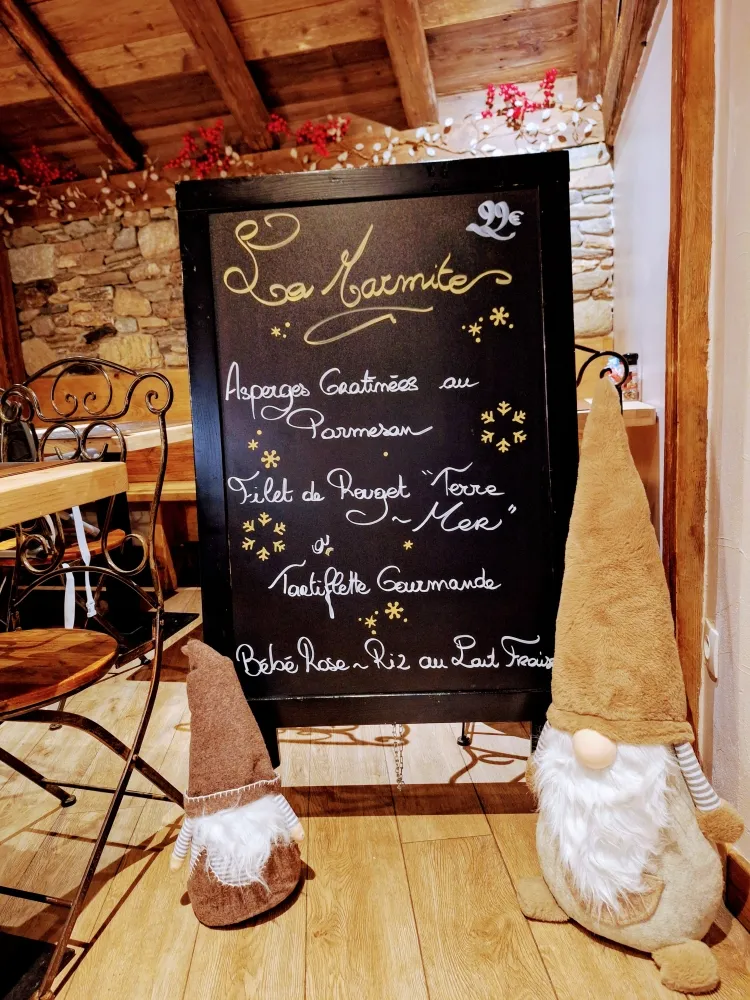 99€
La Marmite
Asperges Gratinées au
Parmesan
Filet de Rouget "Terre
~ Mer"
ou
Tartiflette Gourmande
Bébé Rose ~ Riz au Lait Fraise